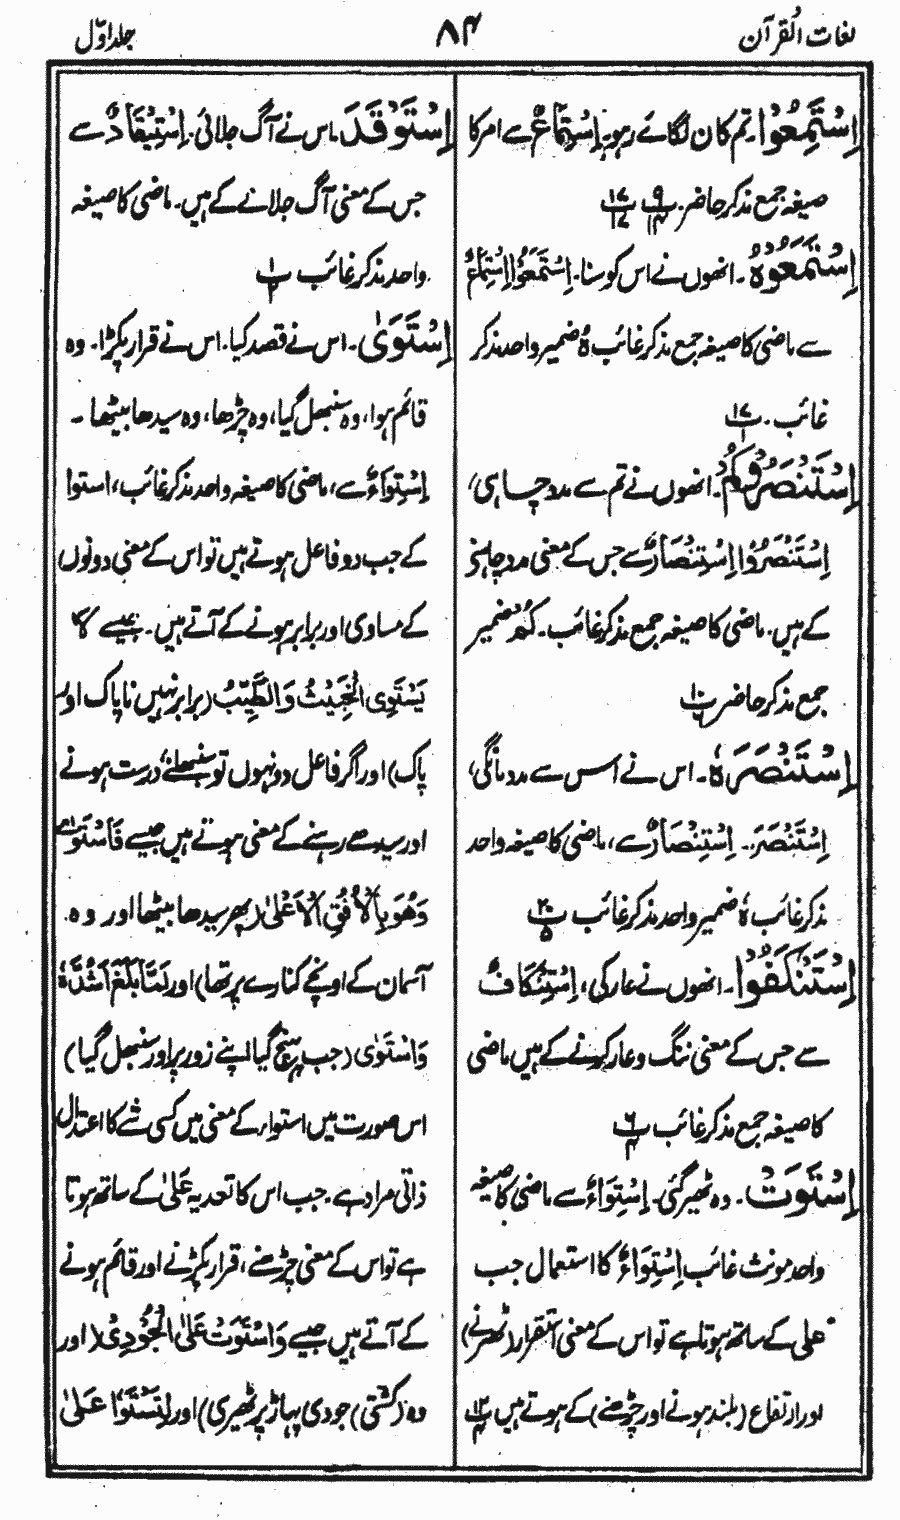 لغات القرآن ۸۴ جلد اوّل
اِسْتَمِعُوْا۔ تم کان لگائے رہو۔ اِسْتِمَاعٌ سے امر کا
صیغہ جمع مذکر حاضر۔ ۹/۱۴ ۱۷/۱۷
اِسْتَمَعُوْهُ ۔ انھوں نے اس کو سنا۔ اِسْتَمَعُوْا اِسْتِمَاعٌ
سے ماضی کا صیغہ جمع مذکر غائب هُ ضمیر واحد مذکر
غائب۔ ۱۷/۱
اِسْتَنْصَرُوْكُمْ۔ انھوں نے تم سے مدد چاہی،
اِسْتَنْصَرُوْا اِسْتِنْصَارٌ سے جس کے معنی مدد چاہنے
کے ہیں۔ ماضی کا صیغہ جمع مذکر غائب۔ كُمْ ضمیر
جمع مذکر حاضر ۱۰/۶
اِسْتَنْصَرَهٗ ۔ اس نے اس سے مدد مانگی،
اِسْتَنْصَرَ۔ اِسْتِنْصَارٌ سے، ماضی کا صیغہ واحد
مذکر غائب هٗ ضمیر واحد مذکر غائب ۲۰/۵
اِسْتَنْكَفُوْا ۔ انھوں نے عار کی، اِسْتِنْكَافٌ
سے جس کے معنی ننگ و عار کرنے کے ہیں ماضی
کا صیغہ جمع مذکر غائب ۶/۴
اِسْتَوَتْ ۔ وہ ٹھیر گئی۔ اِسْتِوَاءٌ سے ماضی کا صیغہ
واحد مونث غائب اِسْتِوَاءٌ کا استعمال جب
علی کے ساتھ ہوتا ہے تو اس کے معنی استقرار (ٹھرنے)
اور ارتفاع (بلند ہونے اور چڑھنے) کے ہوتے ہیں ۱۲/۴
اِسْتَوْقَدَ ۔ اس نے آگ جلائی۔ اِسْتِيْقَادٌ سے
جس کے معنی آگ جلانے کے ہیں۔ ماضی کا صیغہ
واحد مذکر غائب ۱/۲
اِسْتَوٰى ۔ اس نے قصد کیا۔ اس نے قرار پکڑا۔ وہ
قائم ہوا، وہ سنبھل گیا، وہ چڑھا، وہ سیدھا بیٹھا ۔
اِسْتِوَاءٌ سے، ماضی کا صیغہ واحد مذکر غائب، استوا
کے جب دو فاعل ہوتے ہیں تو اس کے معنی دونوں
کے مساوی اور برابر ہونے کے آتے ہیں۔ جیسے لَا
يَسْتَوِى الْخَبِيْثُ وَالطَّيِّبُ (برابر نہیں ناپاک اور
پاک) اور اگر فاعل دو نہوں تو سنبھلنے، درست ہونے
اور سیدھے رہنے کے معنی ہوتے ہیں جیسے فَاسْتَوٰى
وَهُوَ بِالْاُفُقِ الْاَعْلٰى (پھر سیدھا بیٹھا اور وہ
آسمان کے اونچے کنارے پر تھا) اور لَمَّا بَلَغَ اَشُدَّهٗ
وَاسْتَوٰى (جب پہنچ گیا اپنے زور پر اور سنبھل گیا)
اس صورت میں استواء کے معنی میں کسی شے کا اعتدال
ذاتی مراد ہے۔ جب اس کا تعدیہ عَلىٰ کے ساتھ ہوتا
ہے تو اس کے معنی چڑھنے، قرار پکڑنے اور قائم ہونے
کے آتے ہیں جیسے وَاسْتَوَتْ عَلَى الْجُوْدِىِّ (اور
وہ (کشتی) جودی پہاڑ پر ٹھیری) اور لِتَسْتَوٗا عَلىٰ